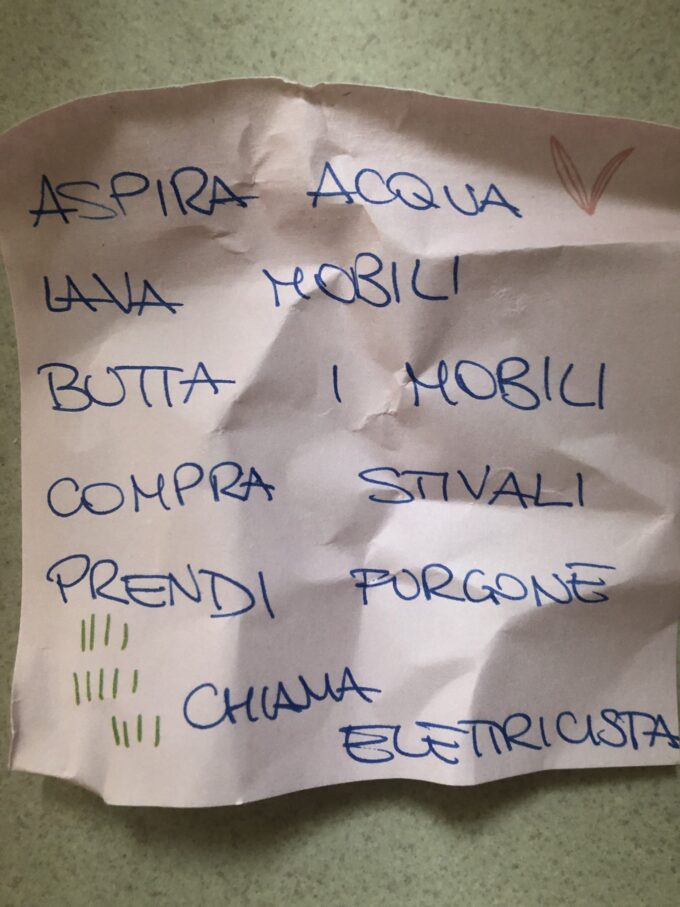 ASPIRA ACQUA
LAVA MOBILI
BUTTA I MOBILI
COMPRA STIVALI
PRENDI FURGONE
CHIAMA
ELETTRICISTA